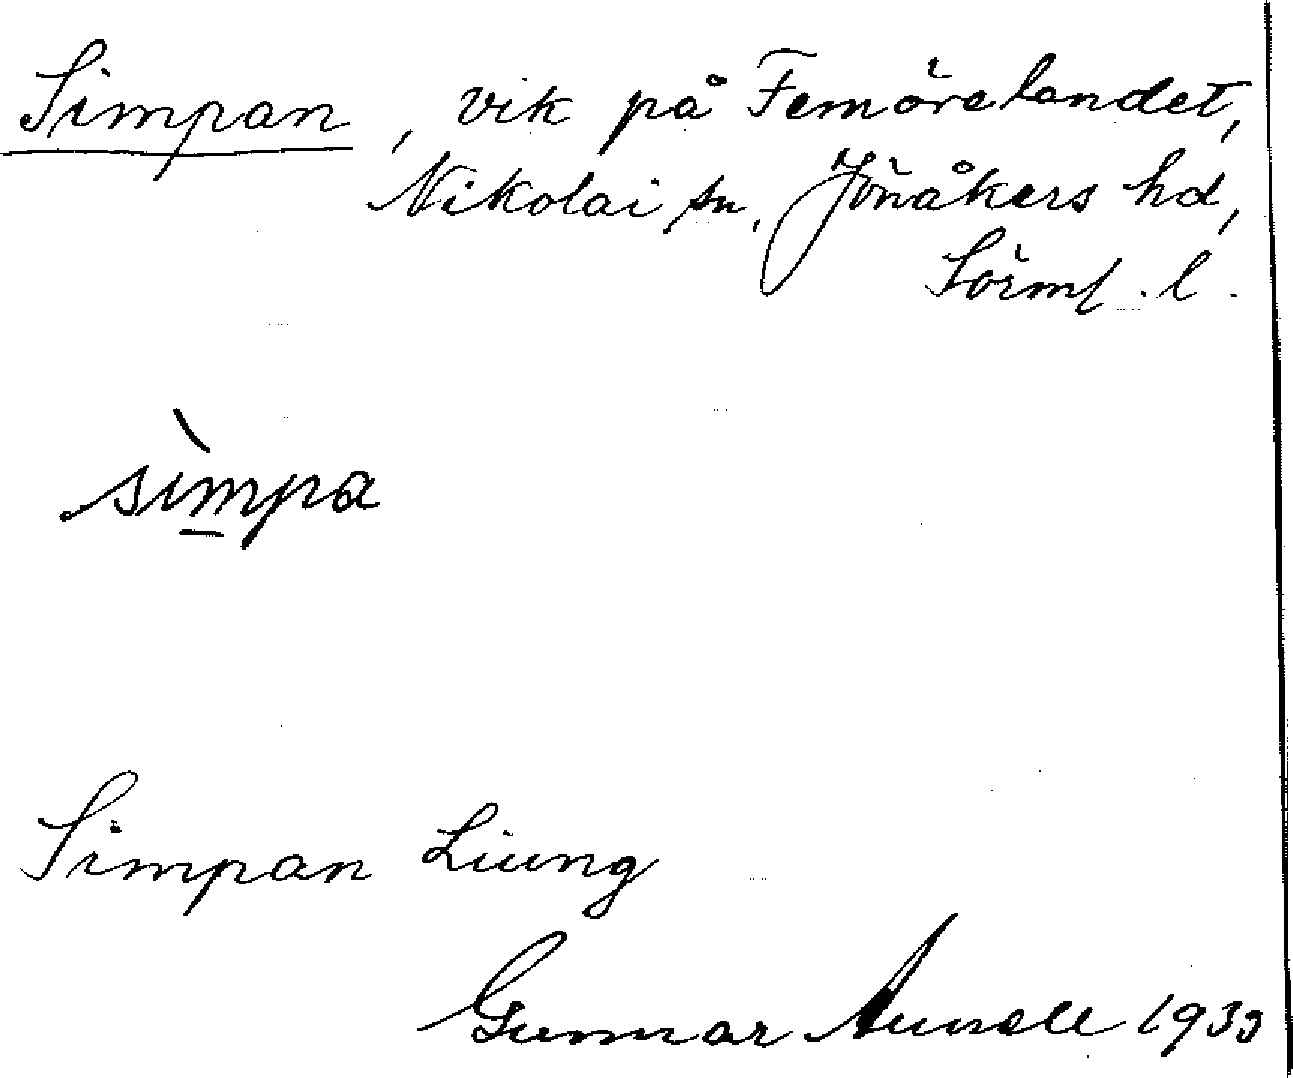 Simpan, vik på Femörelandet,
Nikolai sn, Jönåkers hd,
Sörml. l.
sìmpa
Simpan Liung
Gunnar 1933